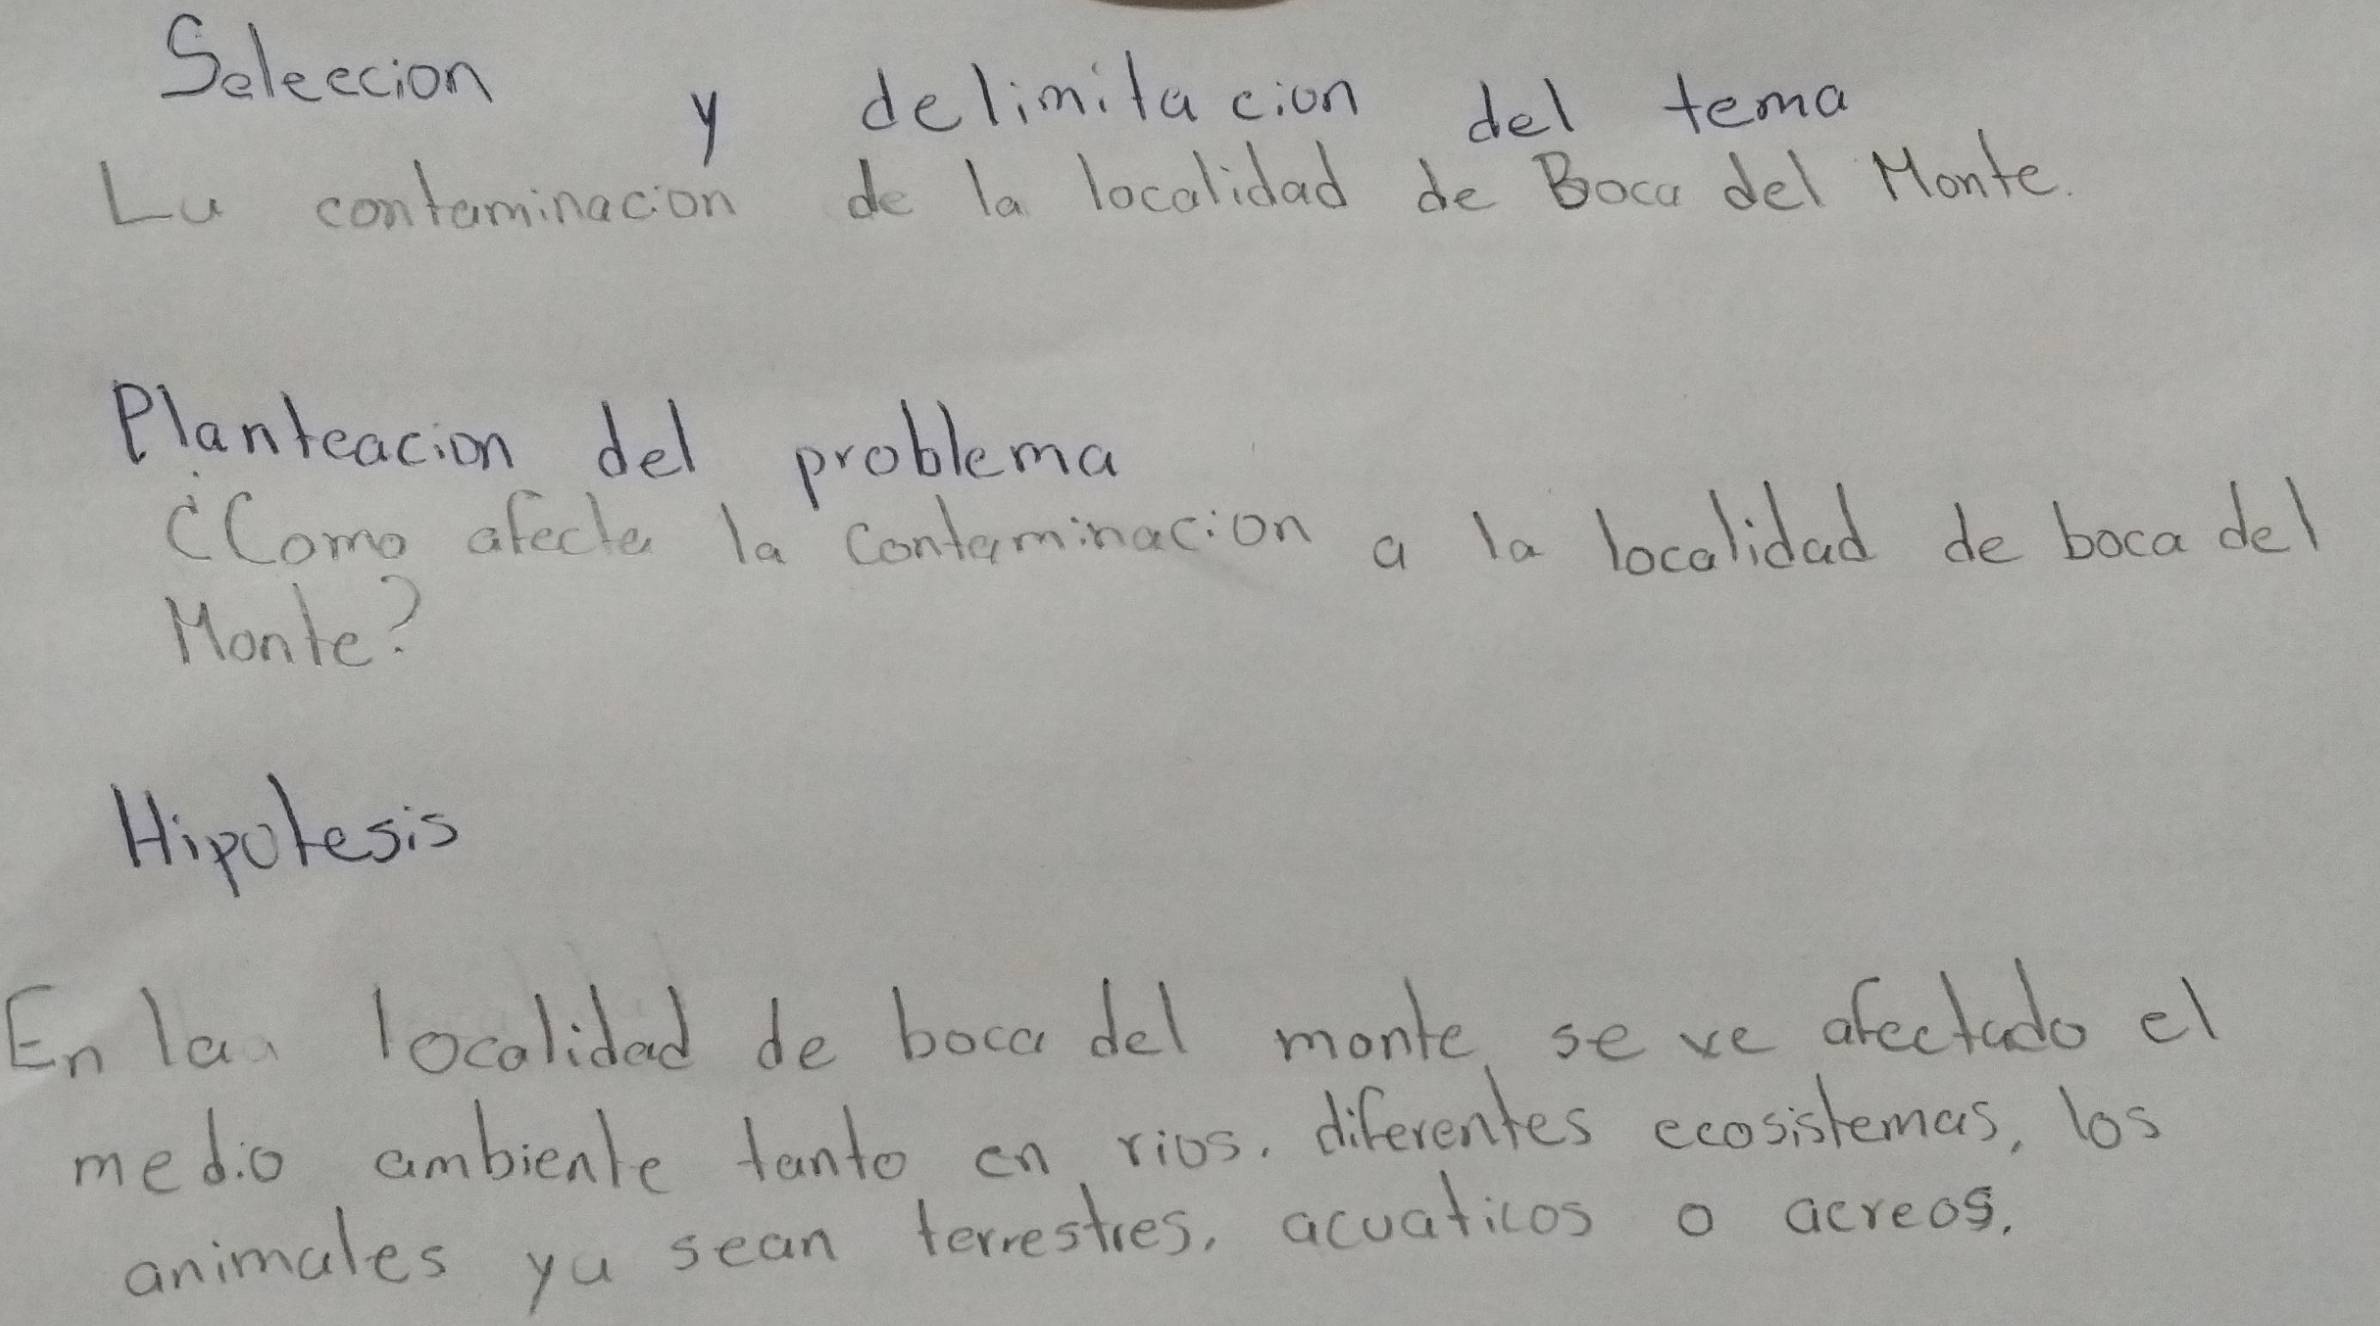 Seleccion y delimitacion del tema
La contaminacion de la localidad de Boca del Monte.
Planteacion del problema
¿Como afecta la contaminacion a la localidad de boca del
Monte?
Hipotesis
En la localidad de boca del monte, se ve afectado el
medio ambiente tanto en rios, diferentes ecosistemas, los
animales ya sean terrestres, acuaticos o aereos.